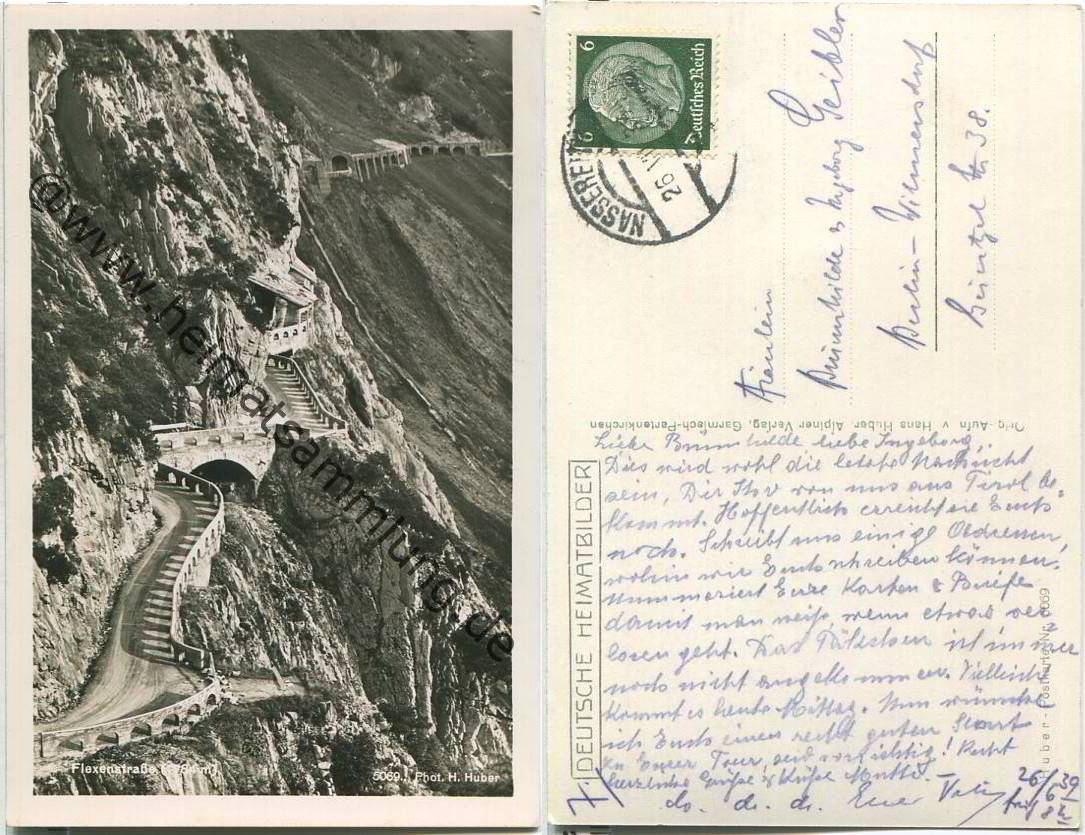 Flexenstraße (1784m)
5069. Phot. H. Huber
@www.heimatsammlung.de
6
6
Deutsches Reich
NASSEREI
26. VI
Fräulein
Brünnhilde & Ingeborg Geibler
Berlin-Wilmersdorf
Str. 38.
Orig.-Aufn. v. Hans Huber Alpiner Verlag, Garmisch-Partenkirchen
DEUTSCHE HEIMATBILDER
Huber-Postkarte Nr. 5069
Liebe Brünnhilde liebe Ingeborg,
Dies wird wohl die letzte Nachricht
sein, die Ihr von uns aus Tirol be-
kommt. Hoffentlich erreicht sie Euch
noch. Schreibt uns einige Adressen,
wohin wir Euch schreiben können.
Nummeriert Eure Karten & Briefe
damit man weiß, wenn etwas ver
loren geht. Das Päckchen ist immer
noch nicht angekommen. Vielleicht
kommt es heute Mittag. Nun wünsche
ich Euch einen recht guten Start
zu Eurer Tour, seid vorsichtig! Recht
herzliche Grüße & Küsse Mutti.
do. do. do. Euer Vati
26/6 39
früh 8 h